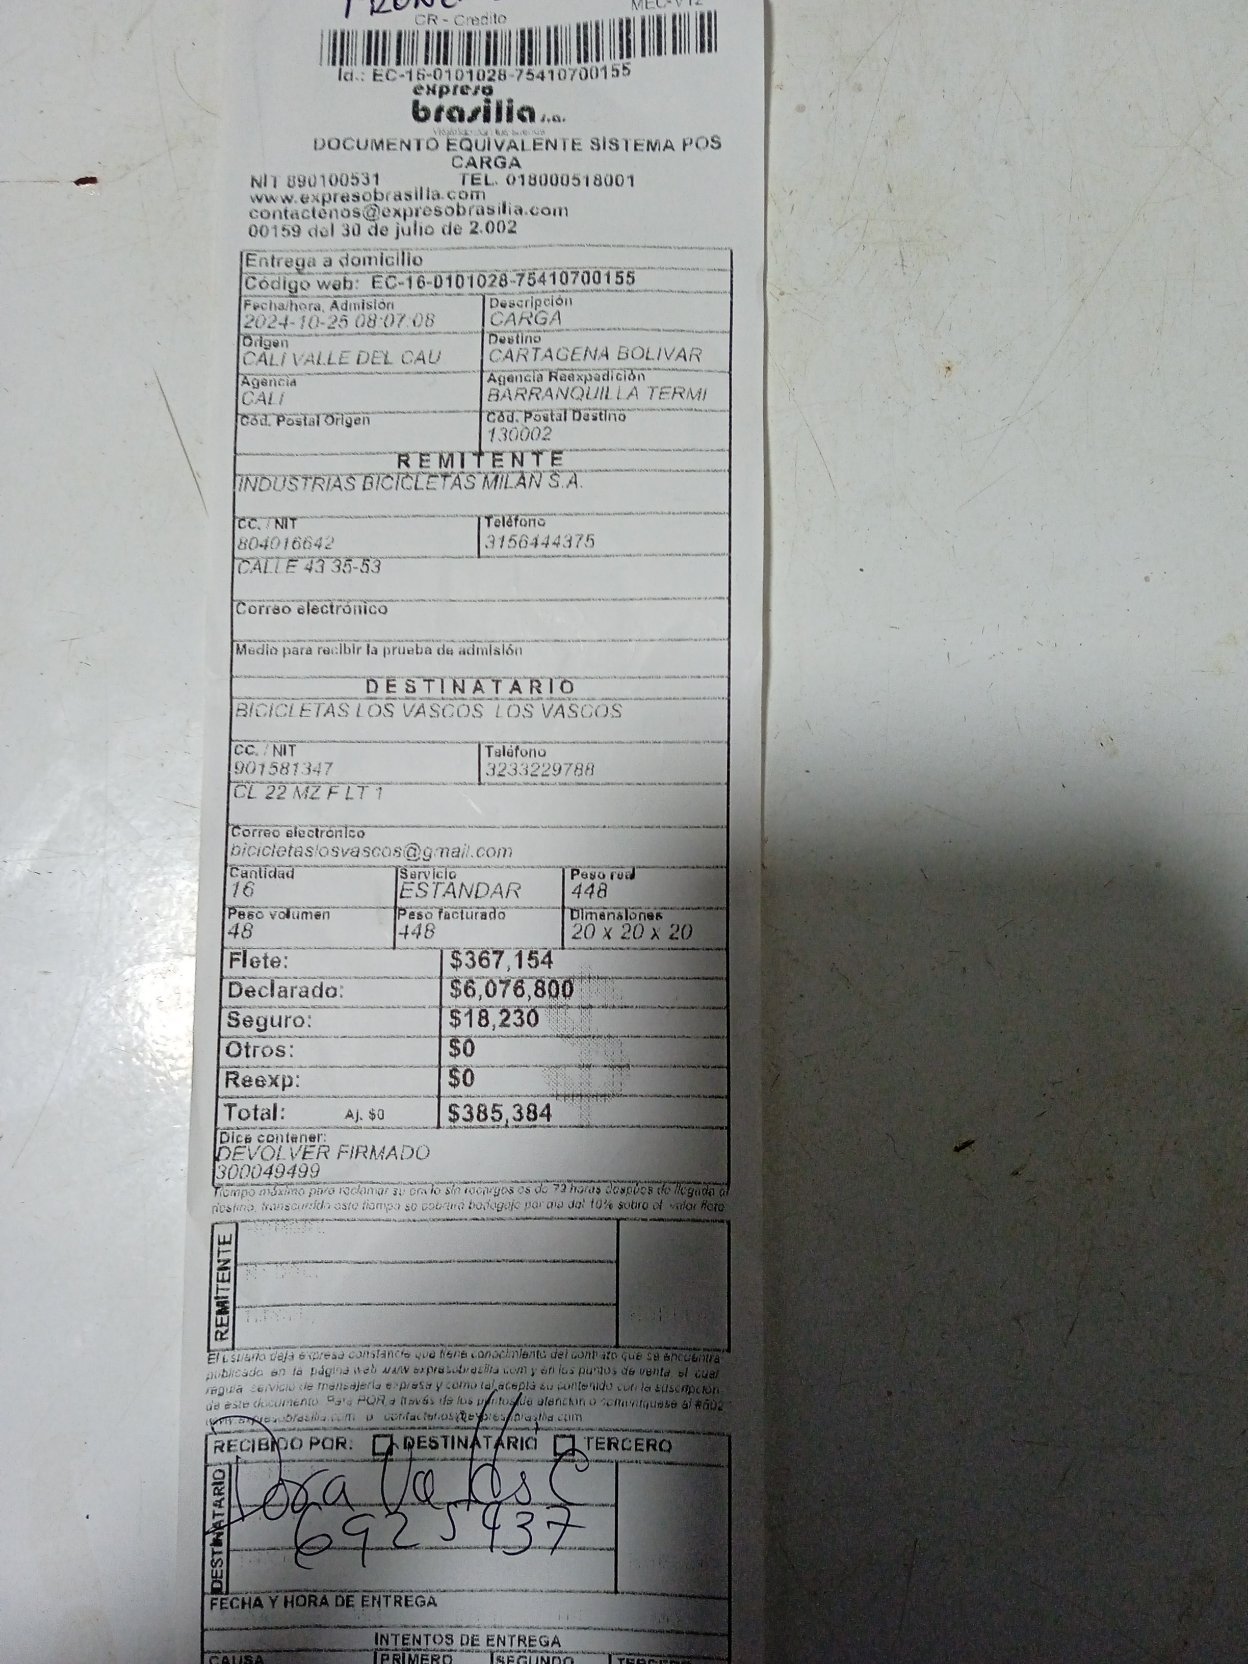 CR - Credito
MEC-V12
Id.: EC-16-0101028-75410700155
expreso
brasilia s.a.
DOCUMENTO EQUIVALENTE SISTEMA POS
CARGA
NIT 890100531 TEL. 018000518001
www.expresobrasilia.com
contactenos@expresobrasilia.com
00159 del 30 de julio de 2.002
Entrega a domicilio
Código web: EC-16-0101028-75410700155
Fecha/hora, Admisión Descripción
2024-10-25 08:07:08 CARGA
Origen Destino
CALI VALLE DEL CAU CARTAGENA BOLIVAR
Agencia Agencia Reexpedición
CALI BARRANQUILLA TERMI
Cód. Postal Origen Cód. Postal Destino
130002
REMITENTE
INDUSTRIAS BICICLETAS MILAN S.A.
CC. / NIT Teléfono
804016642 3156444375
CALLE 43 35-53
Correo electrónico
Medio para recibir la prueba de admisión
DESTINATARIO
BICICLETAS LOS VASCOS LOS VASCOS
CC. / NIT Teléfono
901581347 3233229788
CL 22 MZ F LT 1
Correo electrónico
bicicletaslosvascos@gmail.com
Cantidad Servicio Peso real
16 ESTANDAR 448
Peso volumen Peso facturado Dimensiones
48 448 20 x 20 x 20
Flete: $367,154
Declarado: $6,076,800
Seguro: $18,230
Otros: $0
Reexp: $0
Total: Aj. $0 $385,384
Dice contener:
DEVOLVER FIRMADO
300049499
Tiempo máximo para reclamar su envío sin recargos es de 72 horas después de llegada al
destino, transcurrido este tiempo se cobrará bodegaje por día del 10% sobre el valor flete
REMITENTE
El usuario deja expresa constancia que tiene conocimiento del contrato que se encuentra
publicado en la página web www.expresobrasilia.com y en los puntos de venta el cual
regula servicio de mensajería expresa y como tal acepta su contenido con la suscripción
de este documento. Para PQR a través de los puntos de atención o comuníquese al #502
www.expresobrasilia.com o contactenos@expresobrasilia.com
RECIBIDO POR: DESTINATARIO TERCERO
DESTINATARIO
6925437
FECHA Y HORA DE ENTREGA
INTENTOS DE ENTREGA
CAUSA PRIMERO SEGUNDO TERCERO